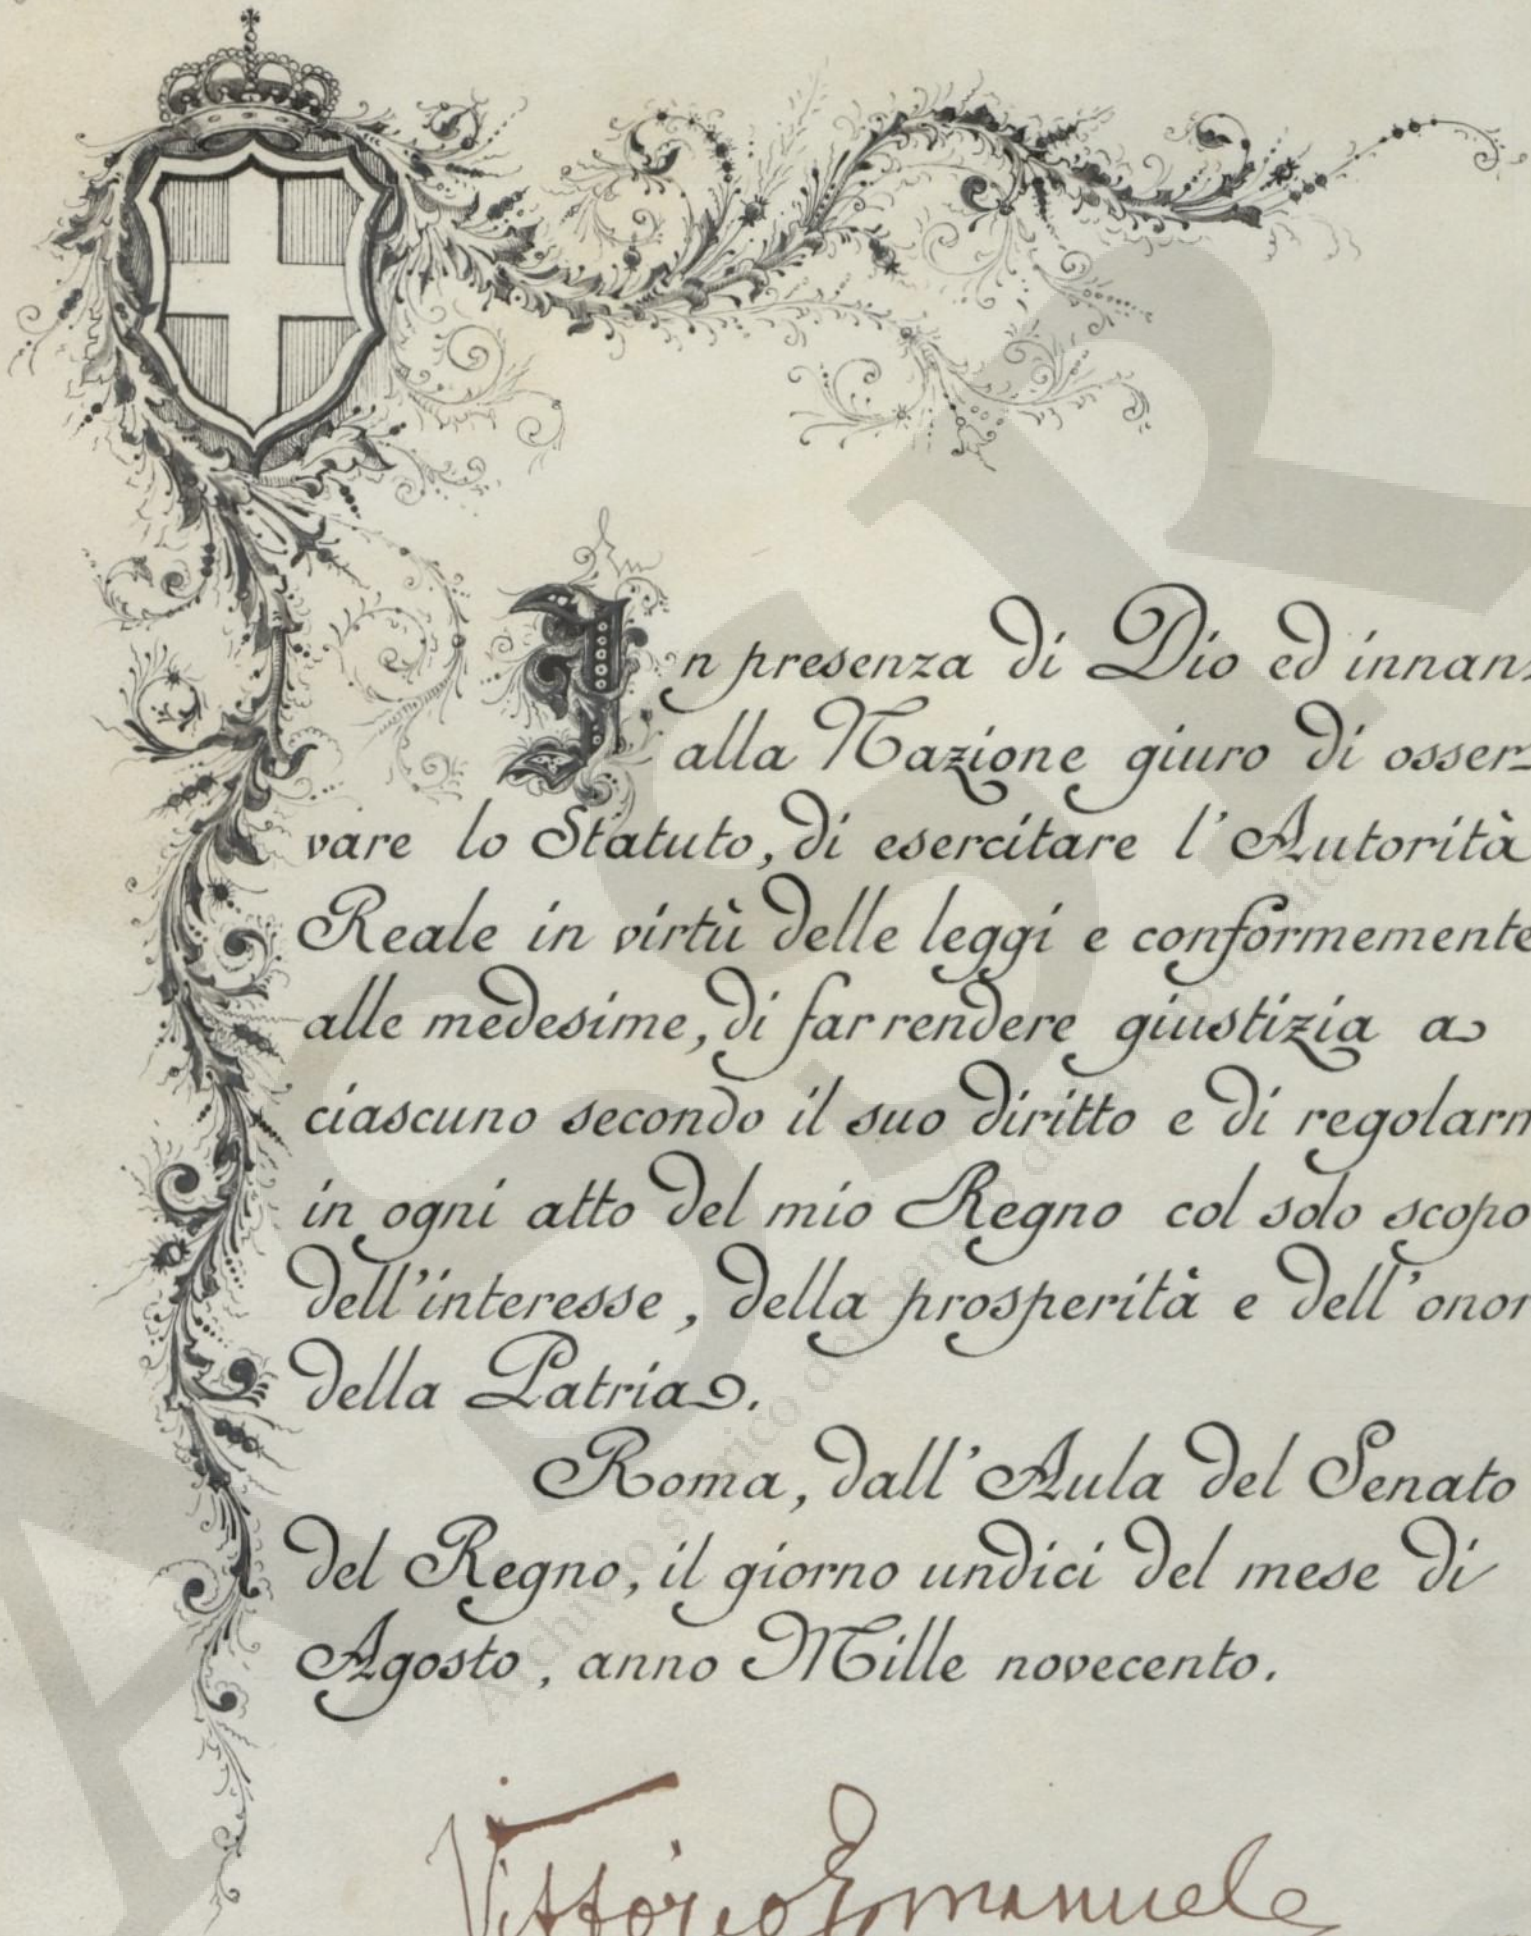 In presenza di Dio ed innan
alla Nazione giuro di osser-
vare lo Statuto, di esercitare l'Autorità
Reale in virtù delle leggi e conformemente
alle medesime, di far rendere giustizia a
ciascuno secondo il suo diritto e di regolarm
in ogni atto del mio Regno col solo scopo
dell'interesse, della prosperità e dell'onor
della Patria.
Roma, dall'Aula del Senato
del Regno, il giorno undici del mese di
Agosto, anno Mille novecento.
Vittorio Emanuele
Archivio storico del Senato della Repubblica